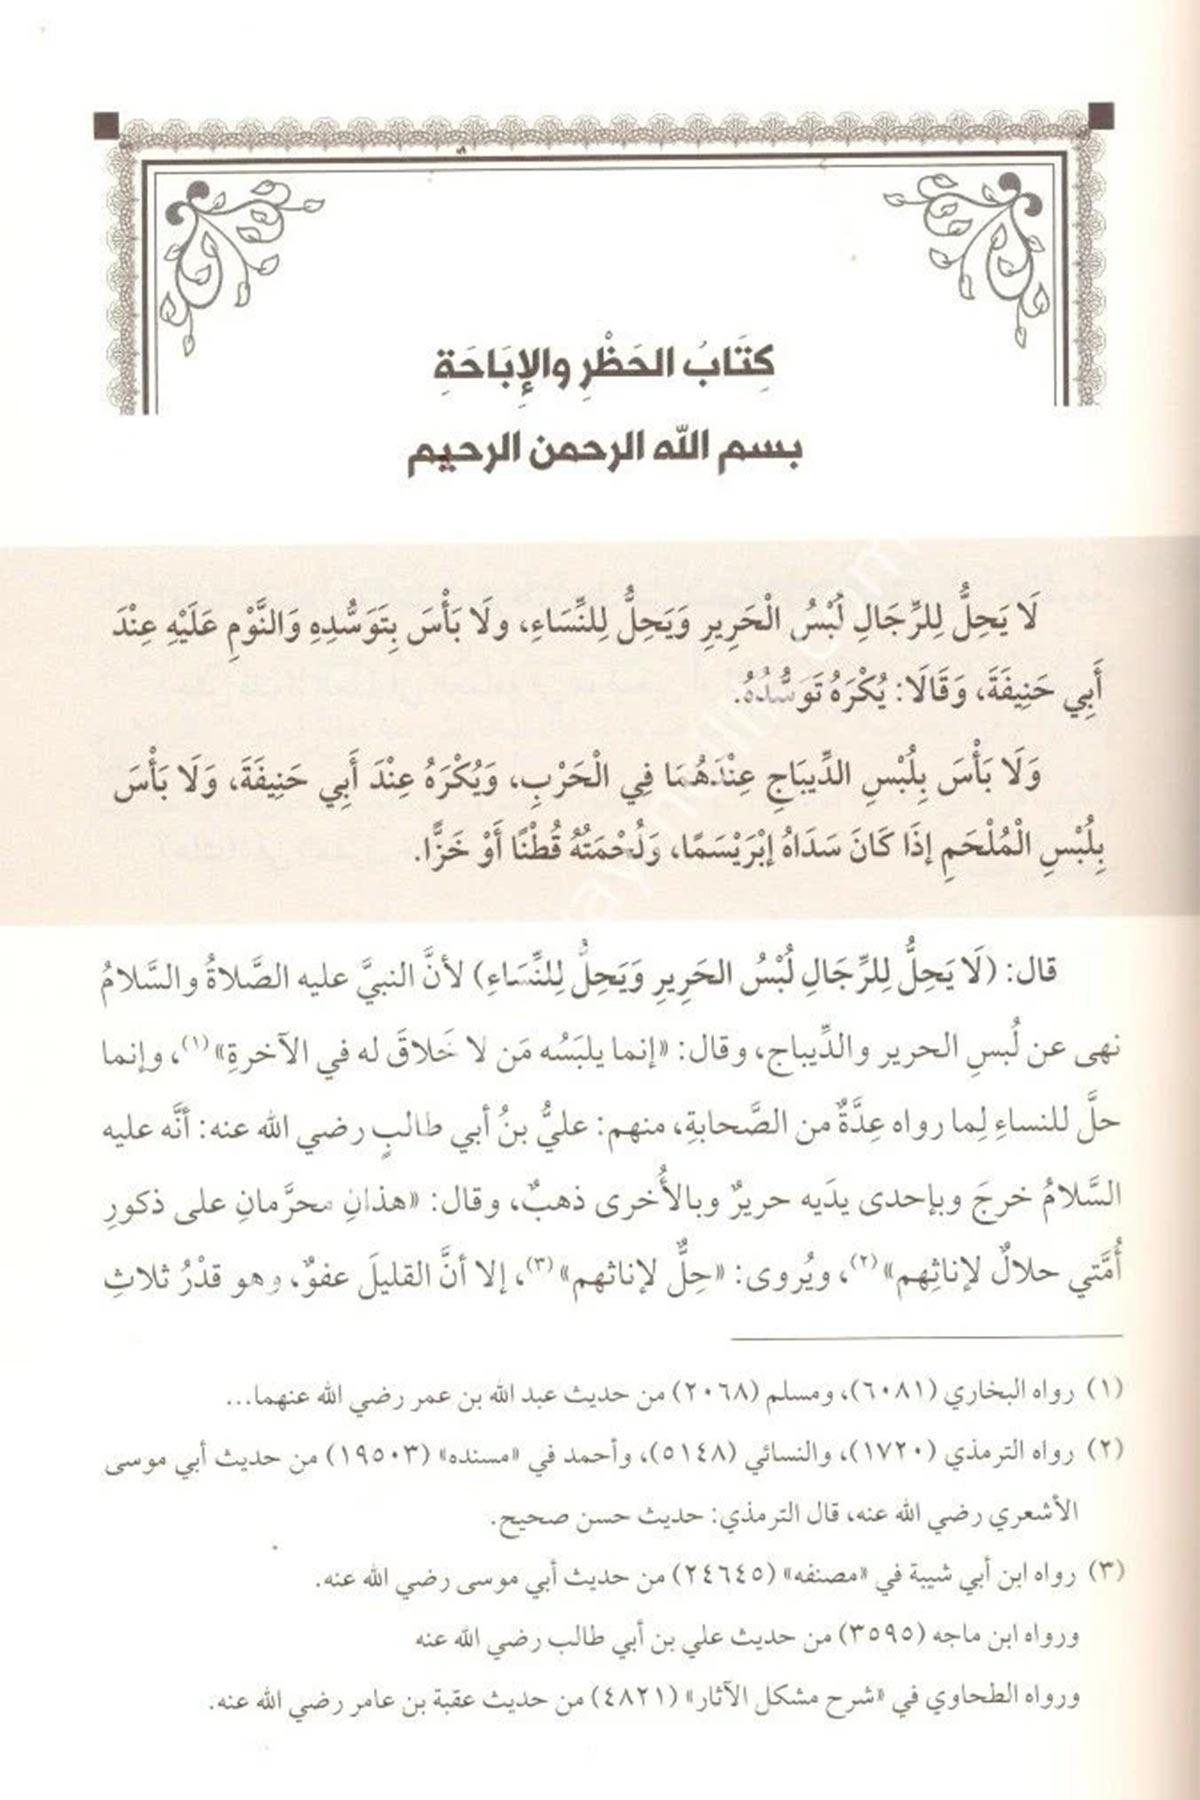 كِتَابُ الحَظْرِ والإِبَاحَةِ
بسم الله الرحمن الرحيم
لَا يَحِلُّ لِلرِّجَالِ لُبْسُ الْحَرِيرِ وَيَحِلُّ لِلنِّسَاءِ، ولَا بَأْسَ بِتَوَسُّدِهِ وَالنَّوْمِ عَلَيْهِ عِنْدَ
أَبِي حَنِيفَةَ، وَقَالَا: يُكْرَهُ تَوَسُّدُهُ.
وَلَا بَأْسَ بِلُبْسِ الدِّيبَاجِ عِنْدَهُمَا فِي الْحَرْبِ، وَيُكْرَهُ عِنْدَ أَبِي حَنِيفَةَ، وَلَا بَأْسَ
بِلُبْسِ الْمُلْحَمِ إذَا كَانَ سَدَاهُ إبْرَيْسَمًا، وَلُحْمَتُهُ قُطْنًا أَوْ خَزًّا.
قال: (لَا يَحِلُّ لِلرِّجَالِ لُبْسُ الحَرِيرِ وَيَحِلُّ لِلنِّسَاءِ) لأنَّ النبيَّ عليه الصَّلاةُ والسَّلامُ
نهى عن لُبسِ الحرير والدِّيباج، وقال: «إنما يلبَسُه مَن لا خَلاقَ له في الآخرةِ»(١)، وإنما
حلَّ للنساءِ لِما رواه عِدَّةٌ من الصَّحابةِ، منهم: عليُّ بنُ أبي طالبٍ رضي الله عنه: أنَّه عليه
السَّلامُ خرجَ وبإحدى يدَيه حريرٌ وبالأُخرى ذهبٌ، وقال: «هذانِ محرَّمانِ على ذكورِ
أُمَّتي حلالٌ لإناثِهم»(٢)، ويُروى: «حِلٌّ لإناثهم»(٣)، إلا أنَّ القليلَ عفوٌ، وهو قدْرُ ثلاثِ
(١) رواه البخاري (٦٠٨١)، ومسلم (٢٠٦٨) من حديث عبد الله بن عمر رضي الله عنهما...
(٢) رواه الترمذي (١٧٢٠)، والنسائي (٥١٤٨)، وأحمد في «مسنده» (١٩٥٠٣) من حديث أبي موسى
الأشعري رضي الله عنه، قال الترمذي: حديث حسن صحيح.
(٣) رواه ابن أبي شيبة في «مصنفه» (٢٤٦٤٥) من حديث أبي موسى رضي الله عنه.
ورواه ابن ماجه (٣٥٩٥) من حديث علي بن أبي طالب رضي الله عنه
ورواه الطحاوي في «شرح مشكل الآثار» (٤٨٢١) من حديث عقبة بن عامر رضي الله عنه.